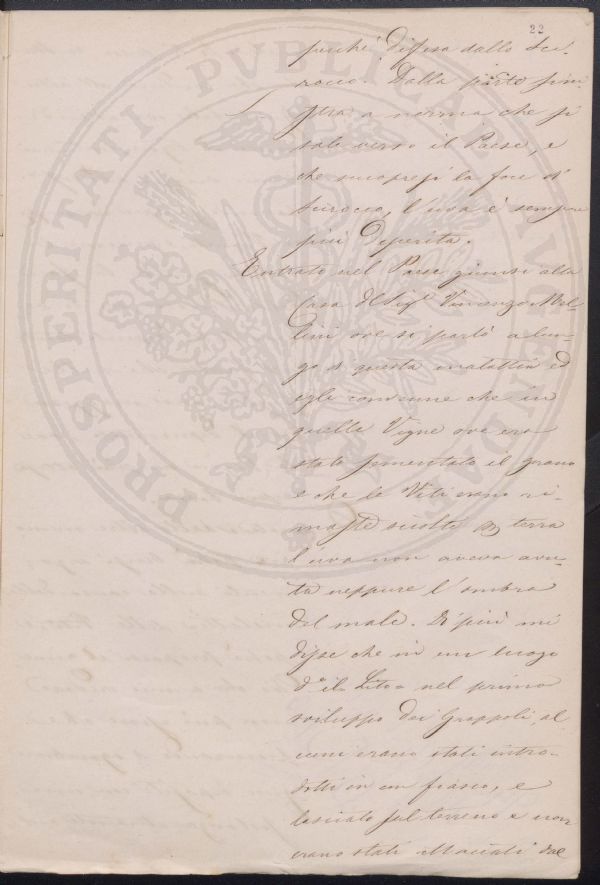 22
perché difesa dallo Sci-
rocco. Dalla parte sini
stra a norma che si
sale verso il Paese, e
che si scopre la foce di
Scirocco, l'uva è sempre
più deperita.
Entrato nel Paese giunsi alla
Casa del Sigr. Vincenzo Mel-
lini ove si parlò a lun-
go di questa malattia ed
egli convenne che in
quelle Vigne ove era
stato sementato il grano
e che le Viti erano ri-
maste sciolte per terra
l'uva non aveva avu-
ta neppure l'ombra
del male. Di più mi
disse che in un luogo
do il Lito nel primo
sviluppo dei Grappoli, al
cuni erano stati intro-
dotti in un fiasco, e
lasciato sul terreno e non
erano stati attaccati dal
PROSPERITATI PVBLICAE AVGENDAE